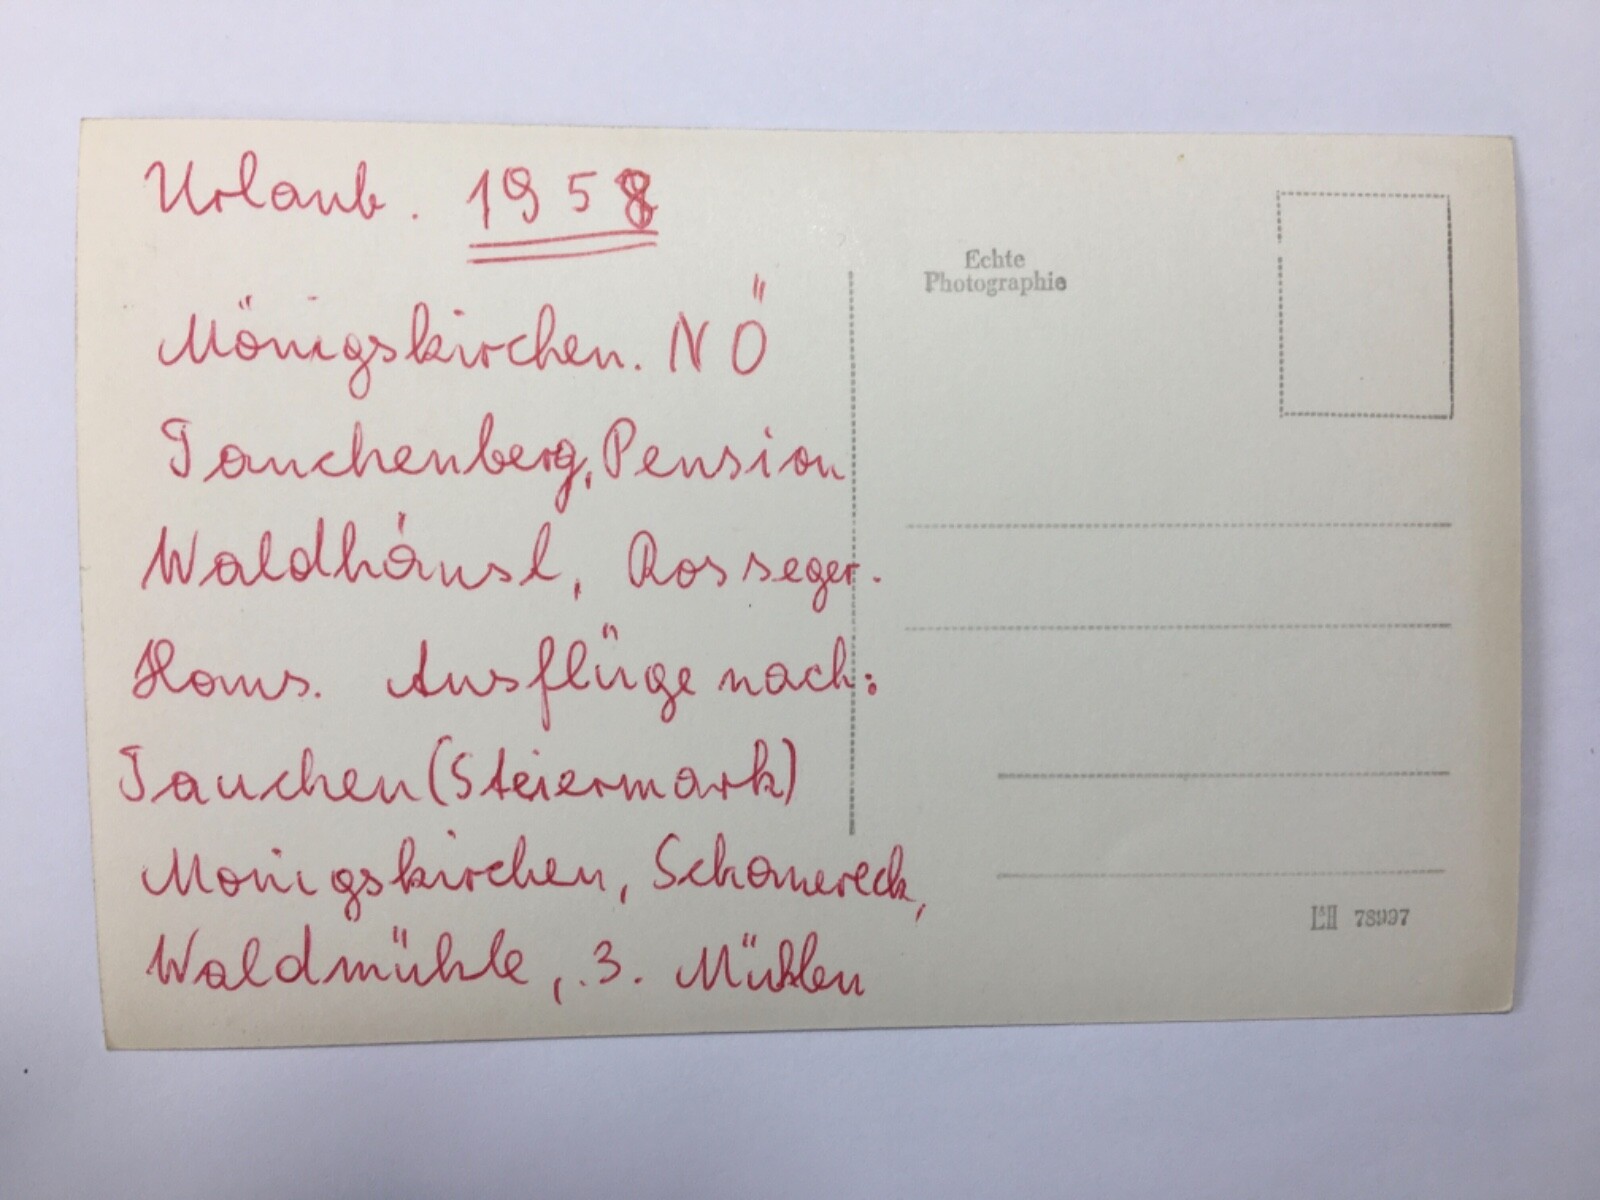 Urlaub. 1958
Mönigskirchen. NÖ
Tauchenberg, Pension
Waldhäusl, Rosseger.
Haus. Ausflüge nach:
Tauchen (Steiermark)
Monigskirchen, Schauereck,
Waldmühle, 3. Mühlen
Echte
Photographie
78997